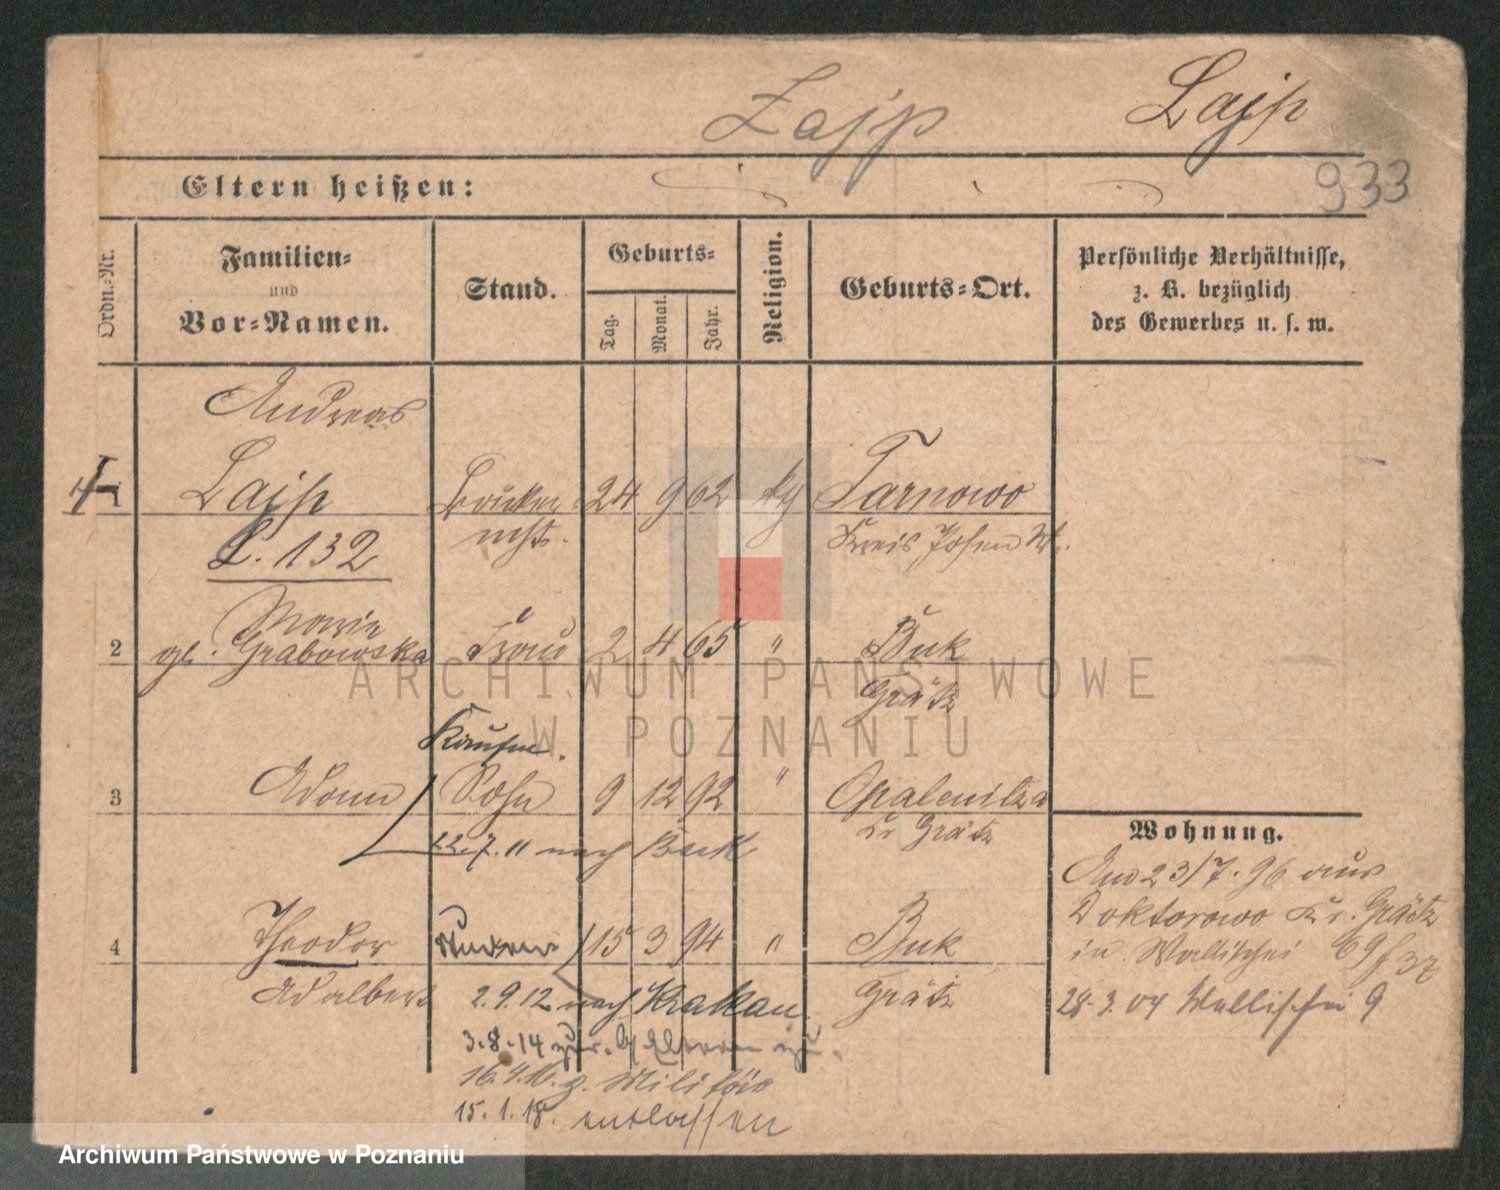 Zajp Lajp
933
Eltern heißen:
Ordn.-Nr.
Familien-
und
Vor-Namen.
Stand.
Geburts-
Tag. Monat. Jahr.
Religion.
Geburts-Ort.
Persönliche Verhältnisse,
z. B. bezüglich
des Gewerbes u. s. w.
Andreas
1 Lajp 24 9 62 kg Tarnowo
L. 132 Kreis Posen W.
Marie
2 gb. Grabowska Frau 2 4 65 " Buk
Grätz
3 Adam Sohn 9 12 92 " Opalenitza
Kr Grätz
22.7. 11 nach Buk
4 Theodor Student 15 3 94 " Buk
Adalbert Grätz
2.9.12 nach Krakau
3.8.14 zur. Eltern zu.
16.4.16. z. Militär
15.1.18. entlassen
Wohnung.
Am 23/7.96 aus
Doktorowo Kr. Grätz
in Wallischei 69
28.3.04 Wallischei 9
ARCHIWUM PAŃSTWOWE
W POZNANIU
Archiwum Państwowe w Poznaniu